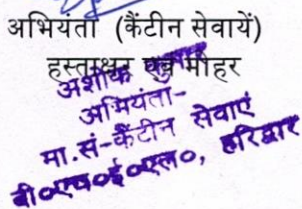 अभियंता (कैंटीन सेवायें)
हस्ताक्षर एवं मोहर
अशोक कुमार
अभियंता-
मा.सं-कैंटीन सेवाएं
बी०एच०ई०एल०, हरिद्वार